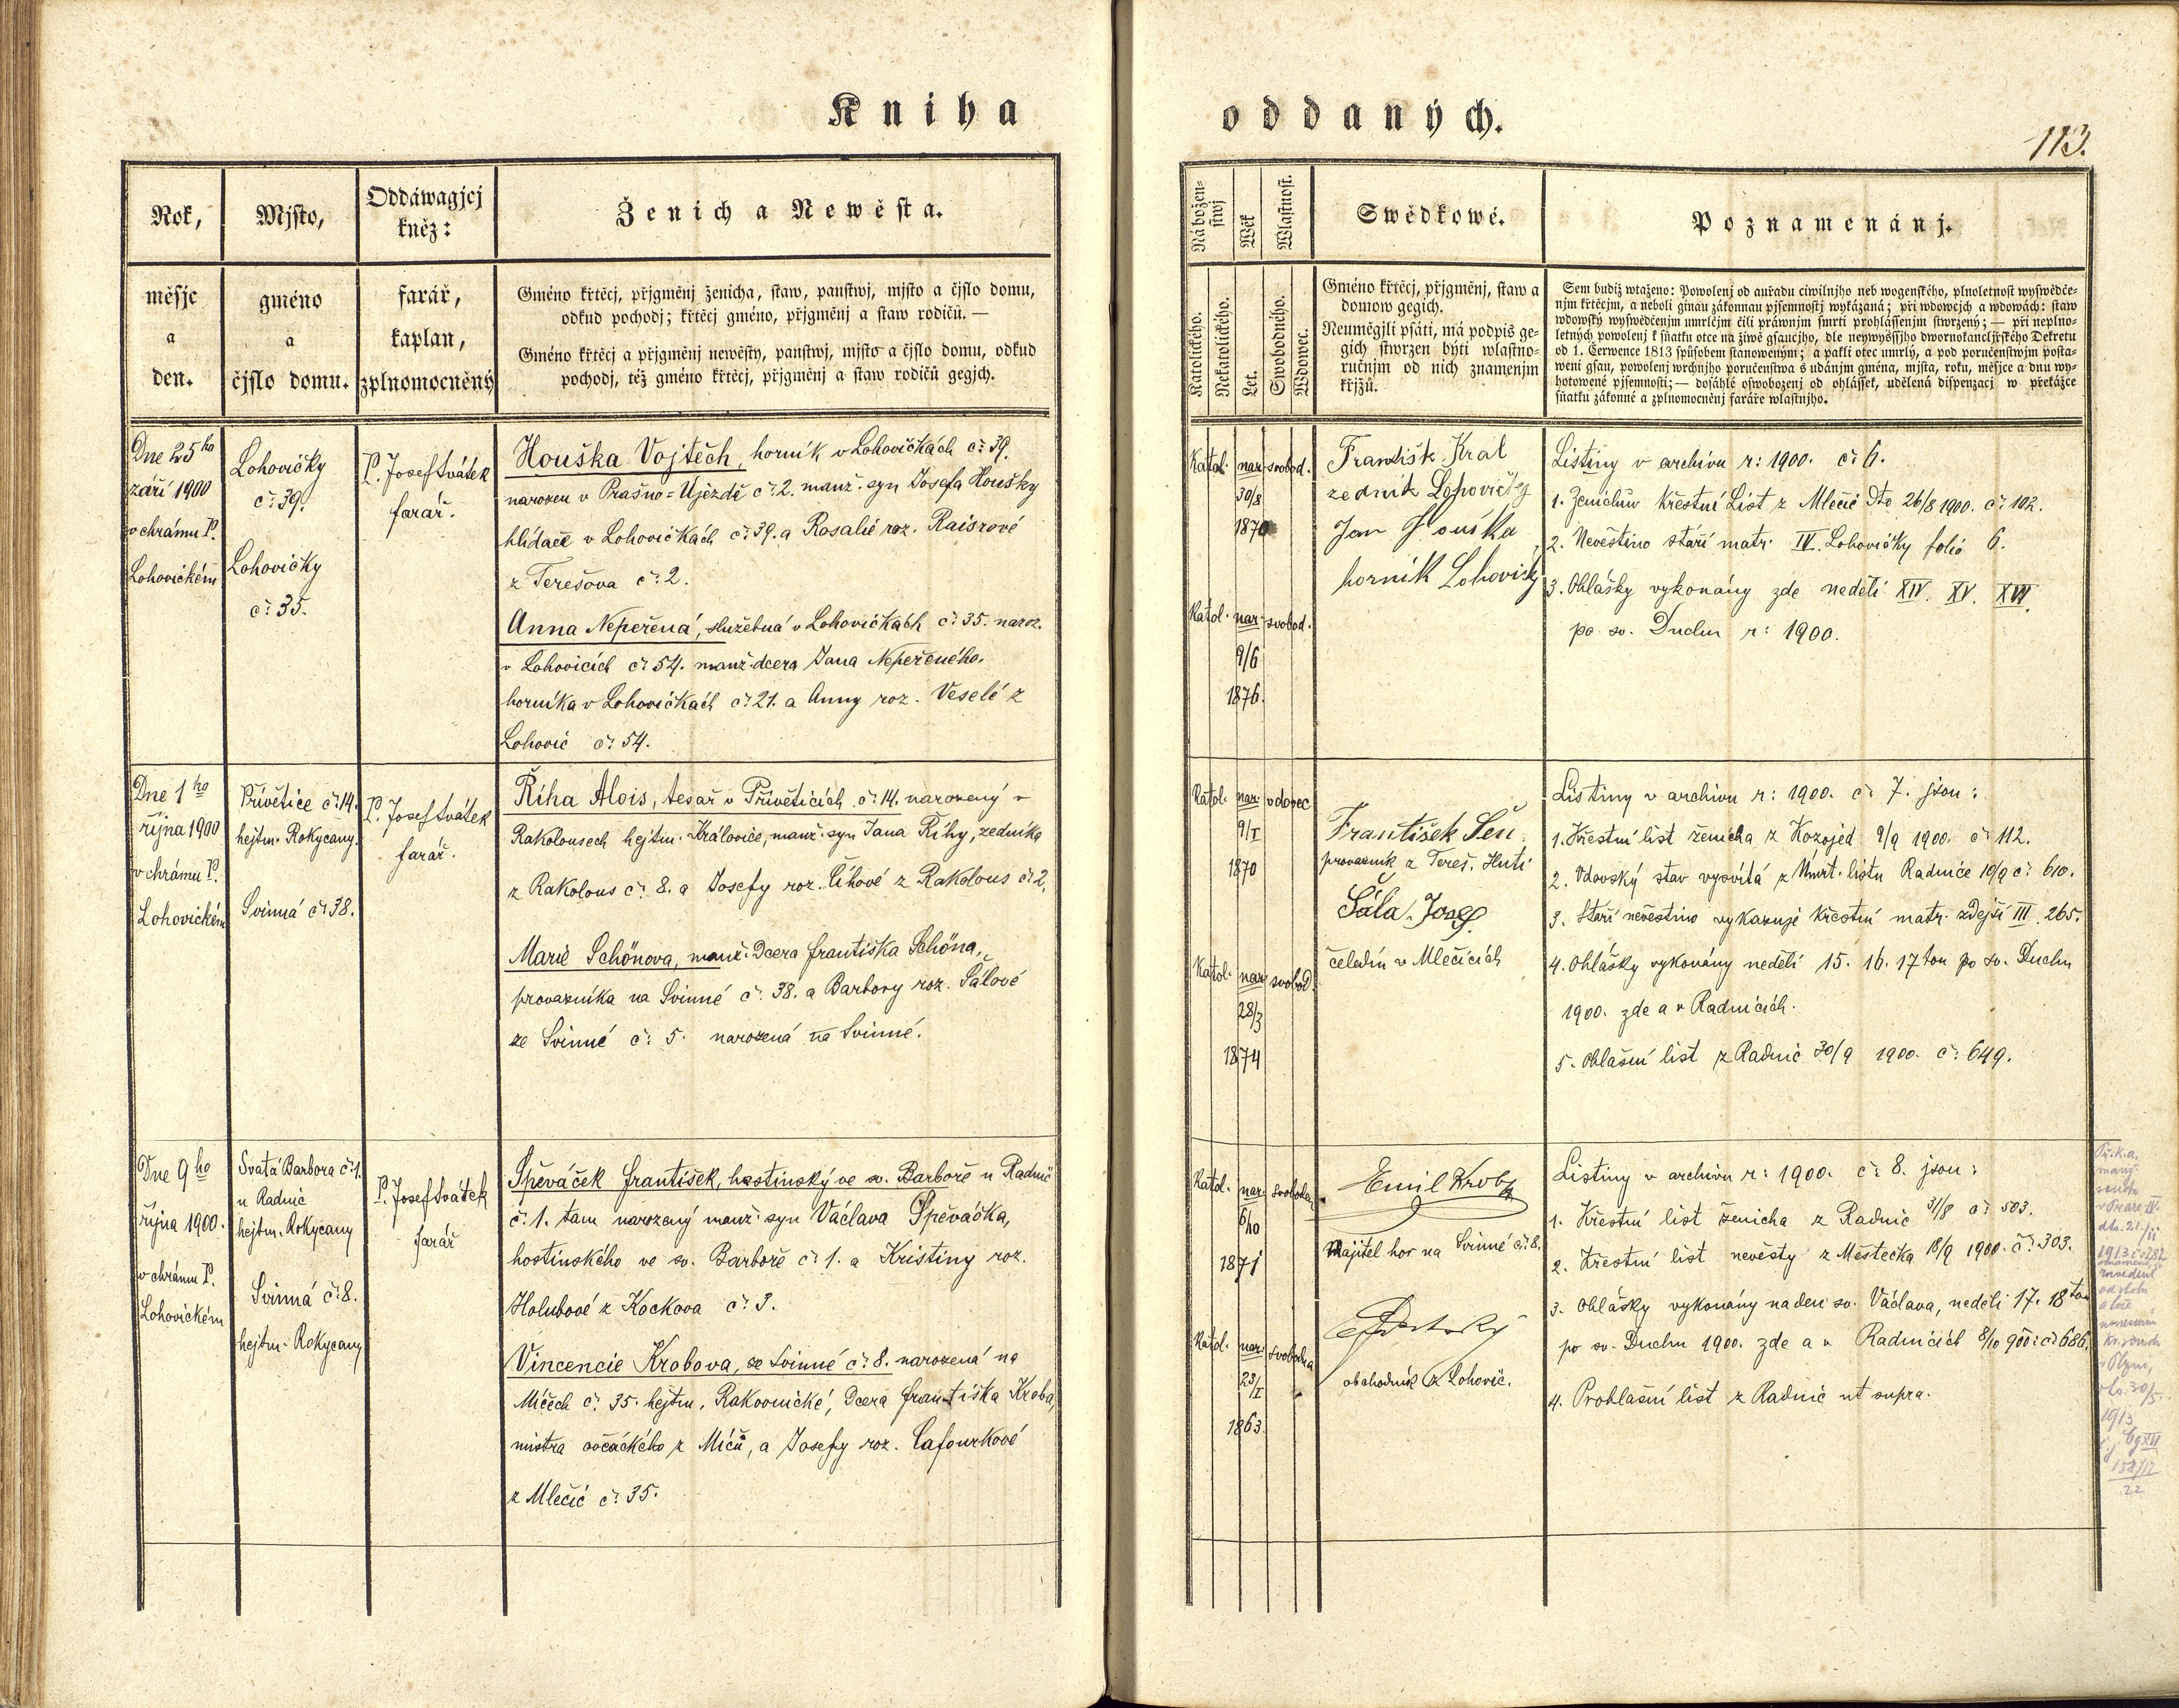 Kniha
oddaných.
113.
Rok,
měsjc
a
den.
Mjsto,
gméno
a
čjslo domu.
Oddáwagjcj
kněz:
farář,
kaplan,
zplnomocněný
Ženich a Newěsta.
Gméno křtěcj, přjgměnj ženicha, staw, panstwj, mjsto a čjslo domu,
odkud pochodj; křtěcj gméno, přjgměnj a staw rodičů. —
Gméno křtěcj a přjgměnj newěsty, panstwj, mjsto a čjslo domu, odkud
pochodj, též gméno křtěcj, přjgměnj a staw rodičů gegjch.
Náboženstwj
Katolického.
Nekatolického.
Wěk
Let.
Wlastnost.
Swobodného.
Wdowec.
Swědkowé.
Gméno křtěcj, přjgměnj, staw a
domow gegich.
Neumějgjli psáti, má podpis ge-
gich stwrzen býti wlastno-
ručnjm od nich znamenjm
křjžů.
Poznamenánj.
Sem budiž wtaženo: Powolenj od auřadu ciwilnjho neb wogenského, plnoletnost wyswědče-
njm křtěcjm, a neboli ginau zákonnau pjsemnostj wykázaná; při wdowcjch a wdowách: staw
wdowský wyswědčenjm umrlčjm čili práwnjm smrti prohlássenjm stwrzený; — při neplno-
letných powolenj k sňatku otce na žiwě gsaucjho, dle neywyššjho dwornokancljřského Dekretu
od 1. Čerwence 1813 způsobem stanoweným; a pakli otec umrlý, a pod poručenstwjm posta-
weni gsau, powolenj wrchnjho poručenstwa s udánjm gména, mjsta, roku, měsjce a dnu wy-
hotowené pjsemnosti; — dosáhlé oswobozenj od ohlássek, udělená dispenzacj w překážce
sňatku zákonné a zplnomocněnj faráře wlastnjho.
Dne 25ho
září 1900
v chrámu P.
Lohovickém
Lohovičky
č: 39.
Lohovičky
č: 35.
P. Josef Svátek
farář.
Houška Vojtěch, horník v Lohovičkách č: 39.
narozen v Prašno-Újezdě č: 2. manž. syn Josefa Houšky
hlídače v Lohovičkách č: 39. a Rosalie roz. Raiszové
z Terešova č: 2.
Anna Nepeřená, služebná v Lohovičkách č: 35. naroz.
v Lohovicích č: 54. manž. dcera Jana Nepeřeného,
horníka v Lohovičkách č: 21. a Anny roz. Veselé z
Lohovic č: 54.
Katol. nar. svobod.
30/8
1870
Katol. nar. svobod.
9/6
1876.
František Kral
zednik Lohovičky
Jan Houška
horník Lohovičky
Listiny v archivu r: 1900. č: 6.
1. Ženichův křestní List z Mlečic dto 26/8 1900. č: 102.
2. Nevěstino stáří matr. IV. Lohovičky folio 6.
3. Ohlášky vykonány zde neděli XIV. XV. XVI.
po sv. Duchu r: 1900.
Dne 1ho
října 1900
v chrámu P.
Lohovickém
Přívětice č: 14.
hejtm. Rokycany.
Svinná č: 38.
P. Josef Svátek
farář.
Říha Alois, tesař v Příveticích č: 14. narozený v
Rakolousech hejtm. Kralovice, manž. syn Jana Říhy, zedníka
z Rakolous č: 8. a Josefy roz. Číhové z Rakolous č: 2.
Marie Schönova, manž. Dcera Františka Schöna,
provazníka na Svinné č: 38. a Barbory roz. Šálové
ze Svinné č: 5. narozená na Svinné.
Katol. nar. vdovec
9/I
1870
Katol. nar. svobod.
28/3
1874
František Šen
provazník z Tereš. Huti
Šála Josef
čeledín v Mlečicích
Listiny v archivu r: 1900. č: 7. jsou:
1. Křestní list ženicha z Kozojed 9/9 1900. č: 112.
2. Vdovský stav vysvítá z Úmrt. listu Radnice 10/9 č: 610.
3. Stáří nevěstino vykazuje křestní matr. zdejší III. 265.
4. Ohlášky vykonány neděli 15. 16. 17tou po sv. Duchu
1900. zde a v Radnicích.
5. Ohlašní list z Radnic 30/9 1900. č: 649.
Dne 9ho
října 1900.
v chrámu P.
Lohovickém
Svatá Barbora č: 1.
u Radnic
hejtm. Rokycany
Svinná č: 8.
hejtm. Rokycany
P. Josef Svátek
farář
Špěváček František, hostinský ve sv. Barboře u Radnic
č: 1. tam narozený manž. syn Václava Špěváčka,
hostinského ve sv. Barboře č: 1. a Kristiny roz.
Holubové z Kockova č: 3.
Vincencie Krobova, ze Svinné č: 8. narozená na
Míčech č: 35. hejtm. Rakovnické, Dcera Františka Kroba,
mistra ovčáckého z Míčů, a Josefy roz. Cafourkové
z Mlečic č: 35.
Katol. nar. svoboden.
6/10
1871
Katol. nar. svobodna
23/I
1863.
Emil Krob
Majitel hor na Svinné č: 8.
obchodník z Lohovic.
Listiny v archivu r: 1900. č: 8. jsou:
1. Křestní list ženicha z Radnic 31/8 č: 503.
2. Křestní list nevěsty z Městečka 18/9 1900. č: 303.
3. Ohlášky vykonány na den sv. Václava, neděli 17. 18tou
po sv. Duchu 1900. zde a v Radnicích 8/10 900: č: 686.
4. Prohlašní list z Radnic ut supra.
1913 č: 282
rozvedeni
od stolu
a lože
v Plzni,
dto. 30/5.
1913